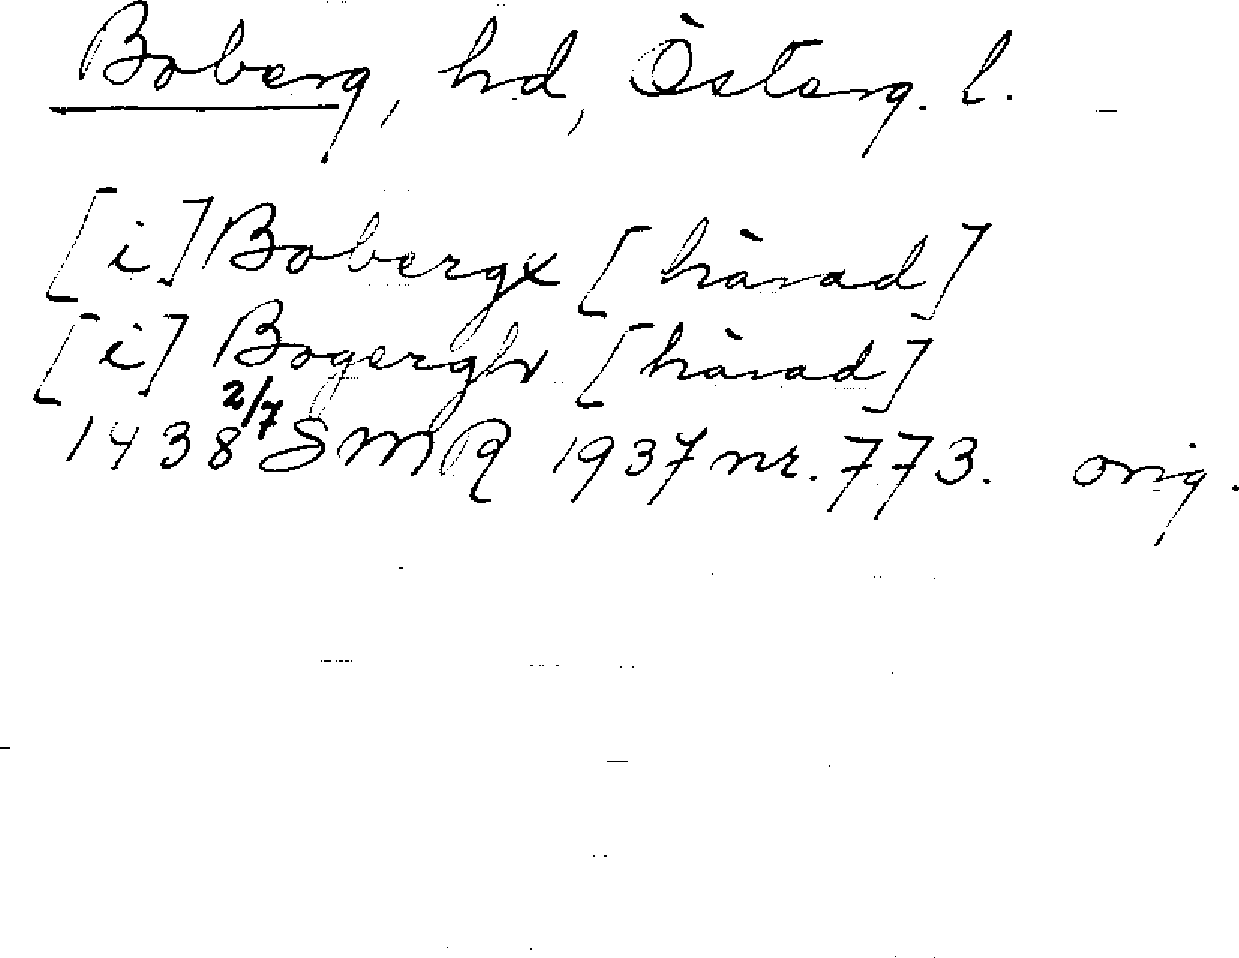 Boberg, hd, Österg. l.
[i] Bobergx [härad]
[i] Bogerghx [härad]
1438 2/7 SMR 1937 nr. 773. orig.